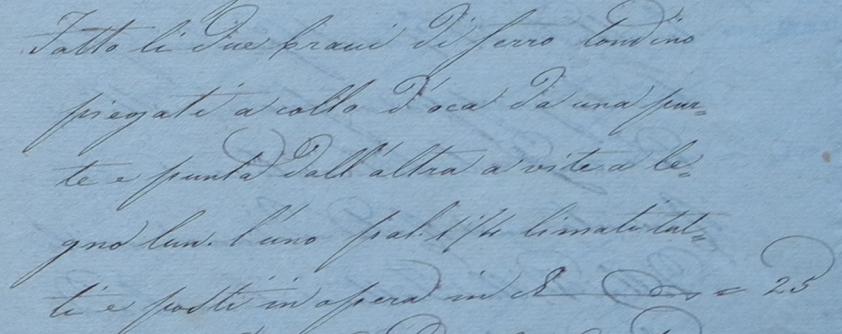 Fatto li due bracci di ferro tondino
piegati a collo d'oca da una par=
te e punta dall'altra a vite a le=
gno lun. l'uno pal. 1 1/4 limati tut=
ti e posti in opera in = 25